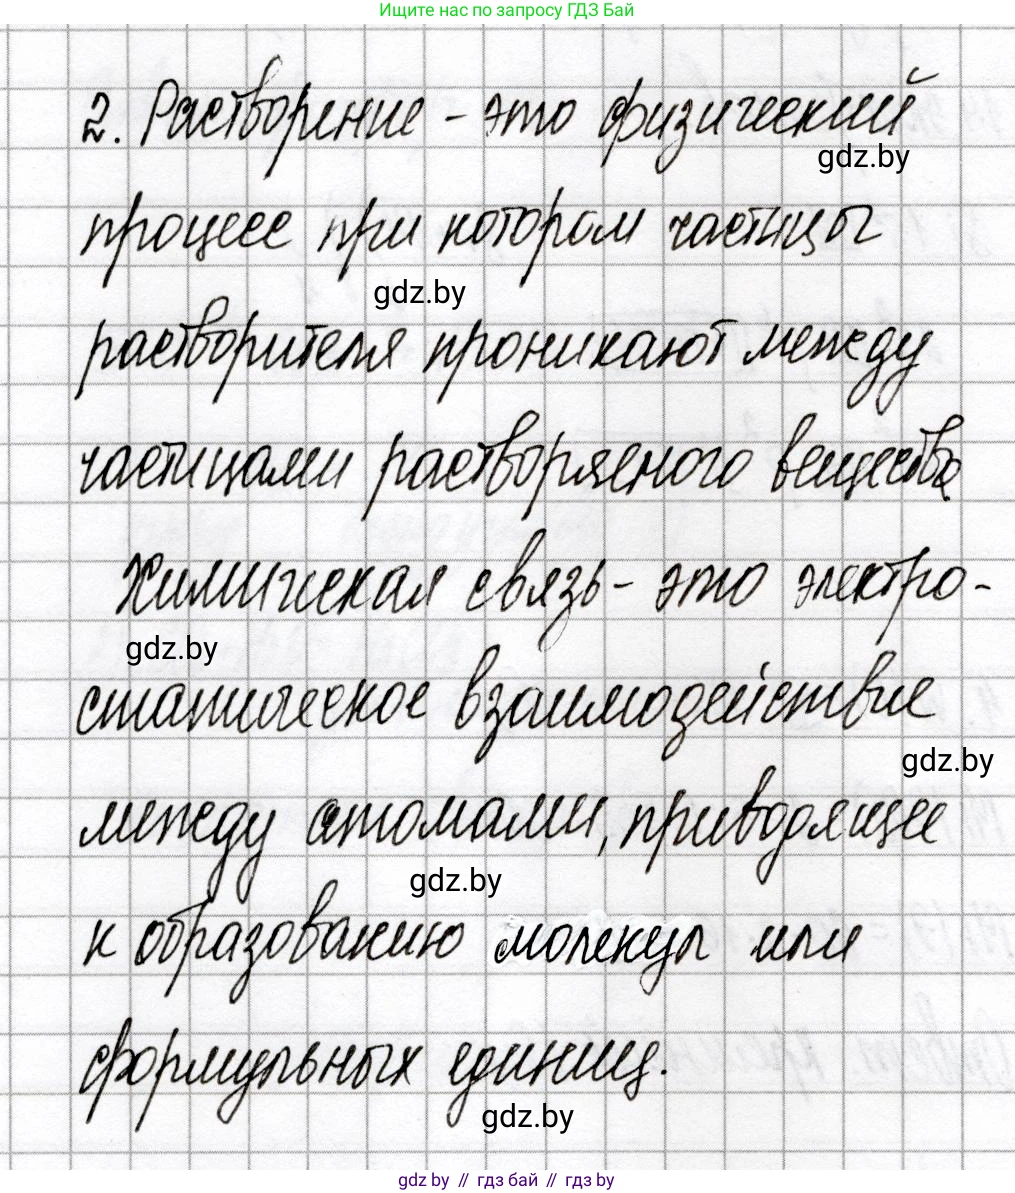 Ищите нас по запросу ГДЗ Бай
2. Растворение - это физический
gdz.by
процесс при котором частицы
gdz.by
растворителя проникают между
частицами растворяемого вещества.
Химическая связь - это электро-
gdz.by
статическое взаимодействие
gdz.by
между атомами, приводящее
gdz.by
к образованию молекул или
формульных единиц.
gdz.by
gdz.by // гдз бай // гдз by